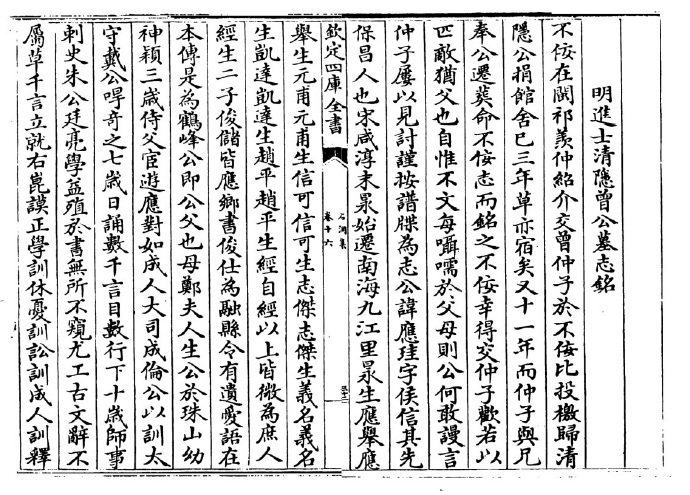 明進士清隱曾公墓志銘
不佞在閩祁羨仲紹介交曾仲子於不佞比投檄歸清
隱公捐館舍已三年草亦宿矣又十一年而仲子與兄
奉公遷葬命不佞志而銘之不佞幸得交仲子歡若以
匹敵猶父也自惟不文每囁嚅於父母則公何敢謾言
仲子屢以見討謹按譜牒為志公諱應珪字侯信其先
保昌人也宋咸淳末杲始遷南海九江里杲生應舉應
欽定四庫全書
石洞集
卷十六
舉生元甫元甫生信可信可生志傑志傑生義名義名
生凱達凱達生趙平趙平生經自經以上皆微為庶人
經生二子俊儲皆應鄉書俊仕為融縣令有遺愛語在
本傳是為鶴峰公即公父也母鄭夫人生公於珠山幼
神穎三歳侍父宦遊應對如成人大司成倫公以訓太
守戴公㖔奇之七歳日誦數千言目數行下十歳師事
刺史朱公廷亮學益殖於書無所不窺尤工古文辭不
屬草千言立就右崑謨正學訓休憂訓訟訓成人訓釋